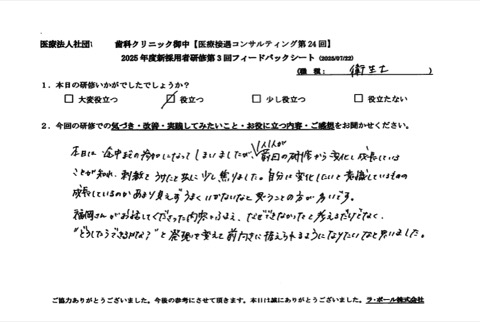 医療法人社団 歯科クリニック御中【医療接遇コンサルティング第24回】
2025年度新採用者研修第3回フィードバックシート (2025/07/22)
(職種: 衛生士 )
1.本日の研修いかがでしたでしょうか?
□ 大変役立つ □ 役立つ □ 少し役立つ □ 役立たない
2.今回の研修での気づき・改善・実践してみたいこと・お役に立つ内容・ご感想をお聞かせください。
1人1人が
本日は途中までの参加になってしまいましたが、前回の研修から変化し成長している
ことが知れ、刺激をうけたと共に少し焦りました。自分は変化したいと意識しているものの
成長しているのかあまり見えずうまくいかないなと思うことの方が多いです。
福岡さんがお話してくださった内容をふまえ、なぜできなかったと考えるだけでなく、
"どうしたらできるかな?"と発想を変えて前向きに捉えられるようになりたいなと思いました。
ご協力ありがとうございました。今後の参考にさせて頂きます。本日は誠にありがとうございました。ラ・ポール株式会社